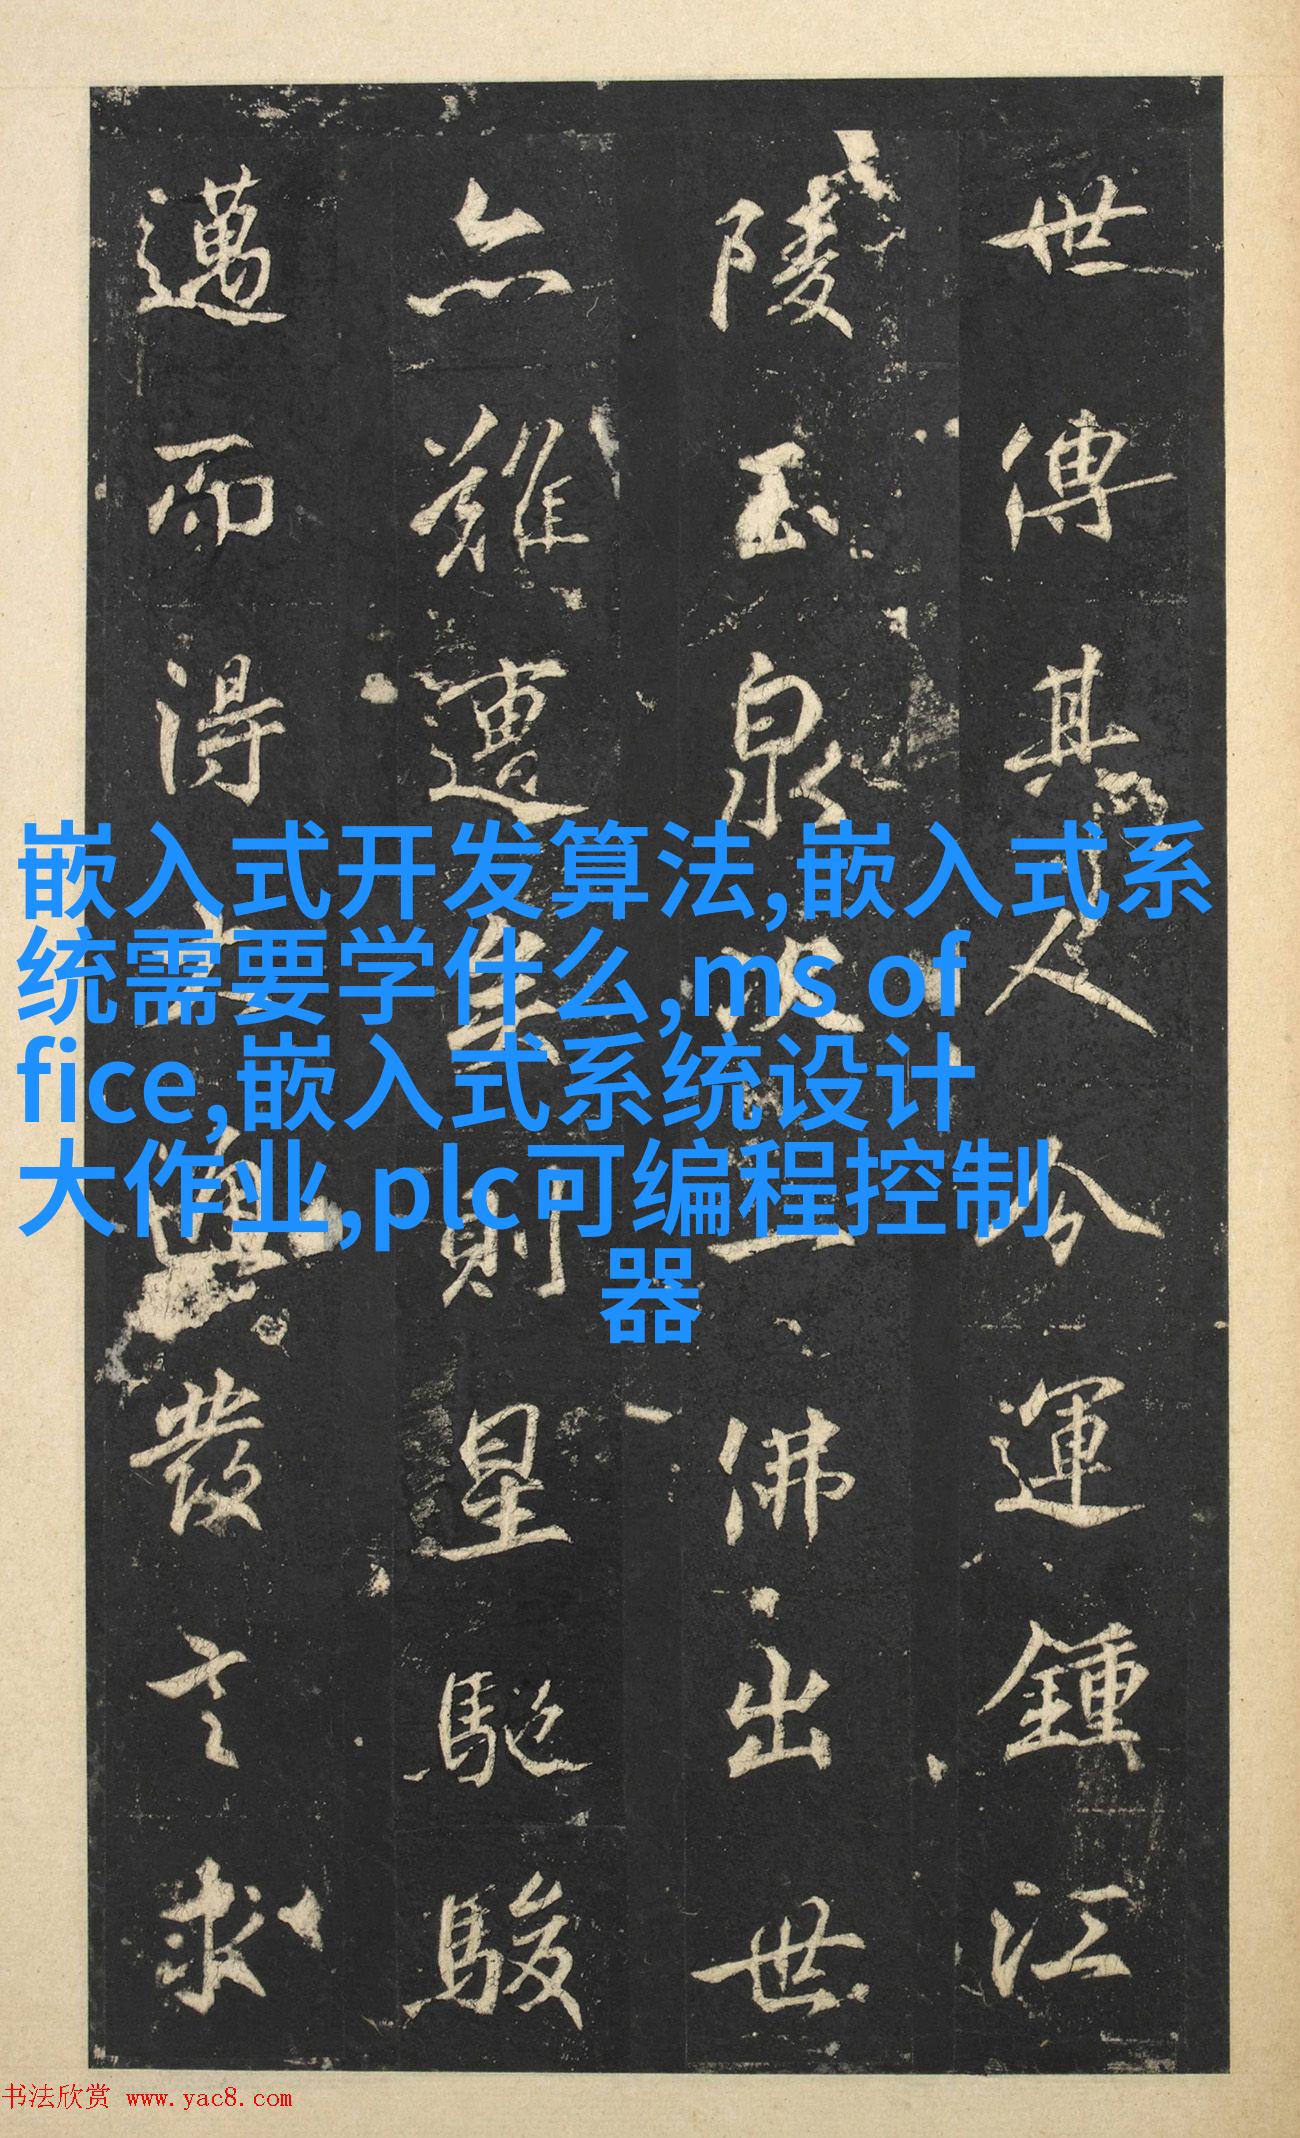 世傳其人今運鍾江
陵玉泉次佛出世
亦難遭矣則星馳駿
邁而得與發言求
嵌入式开发算法,嵌入式系
统需要学什么,ms of
fice,嵌入式系统设计
大作业,plc可编程控制
器
书法欣赏 www.yac8.com